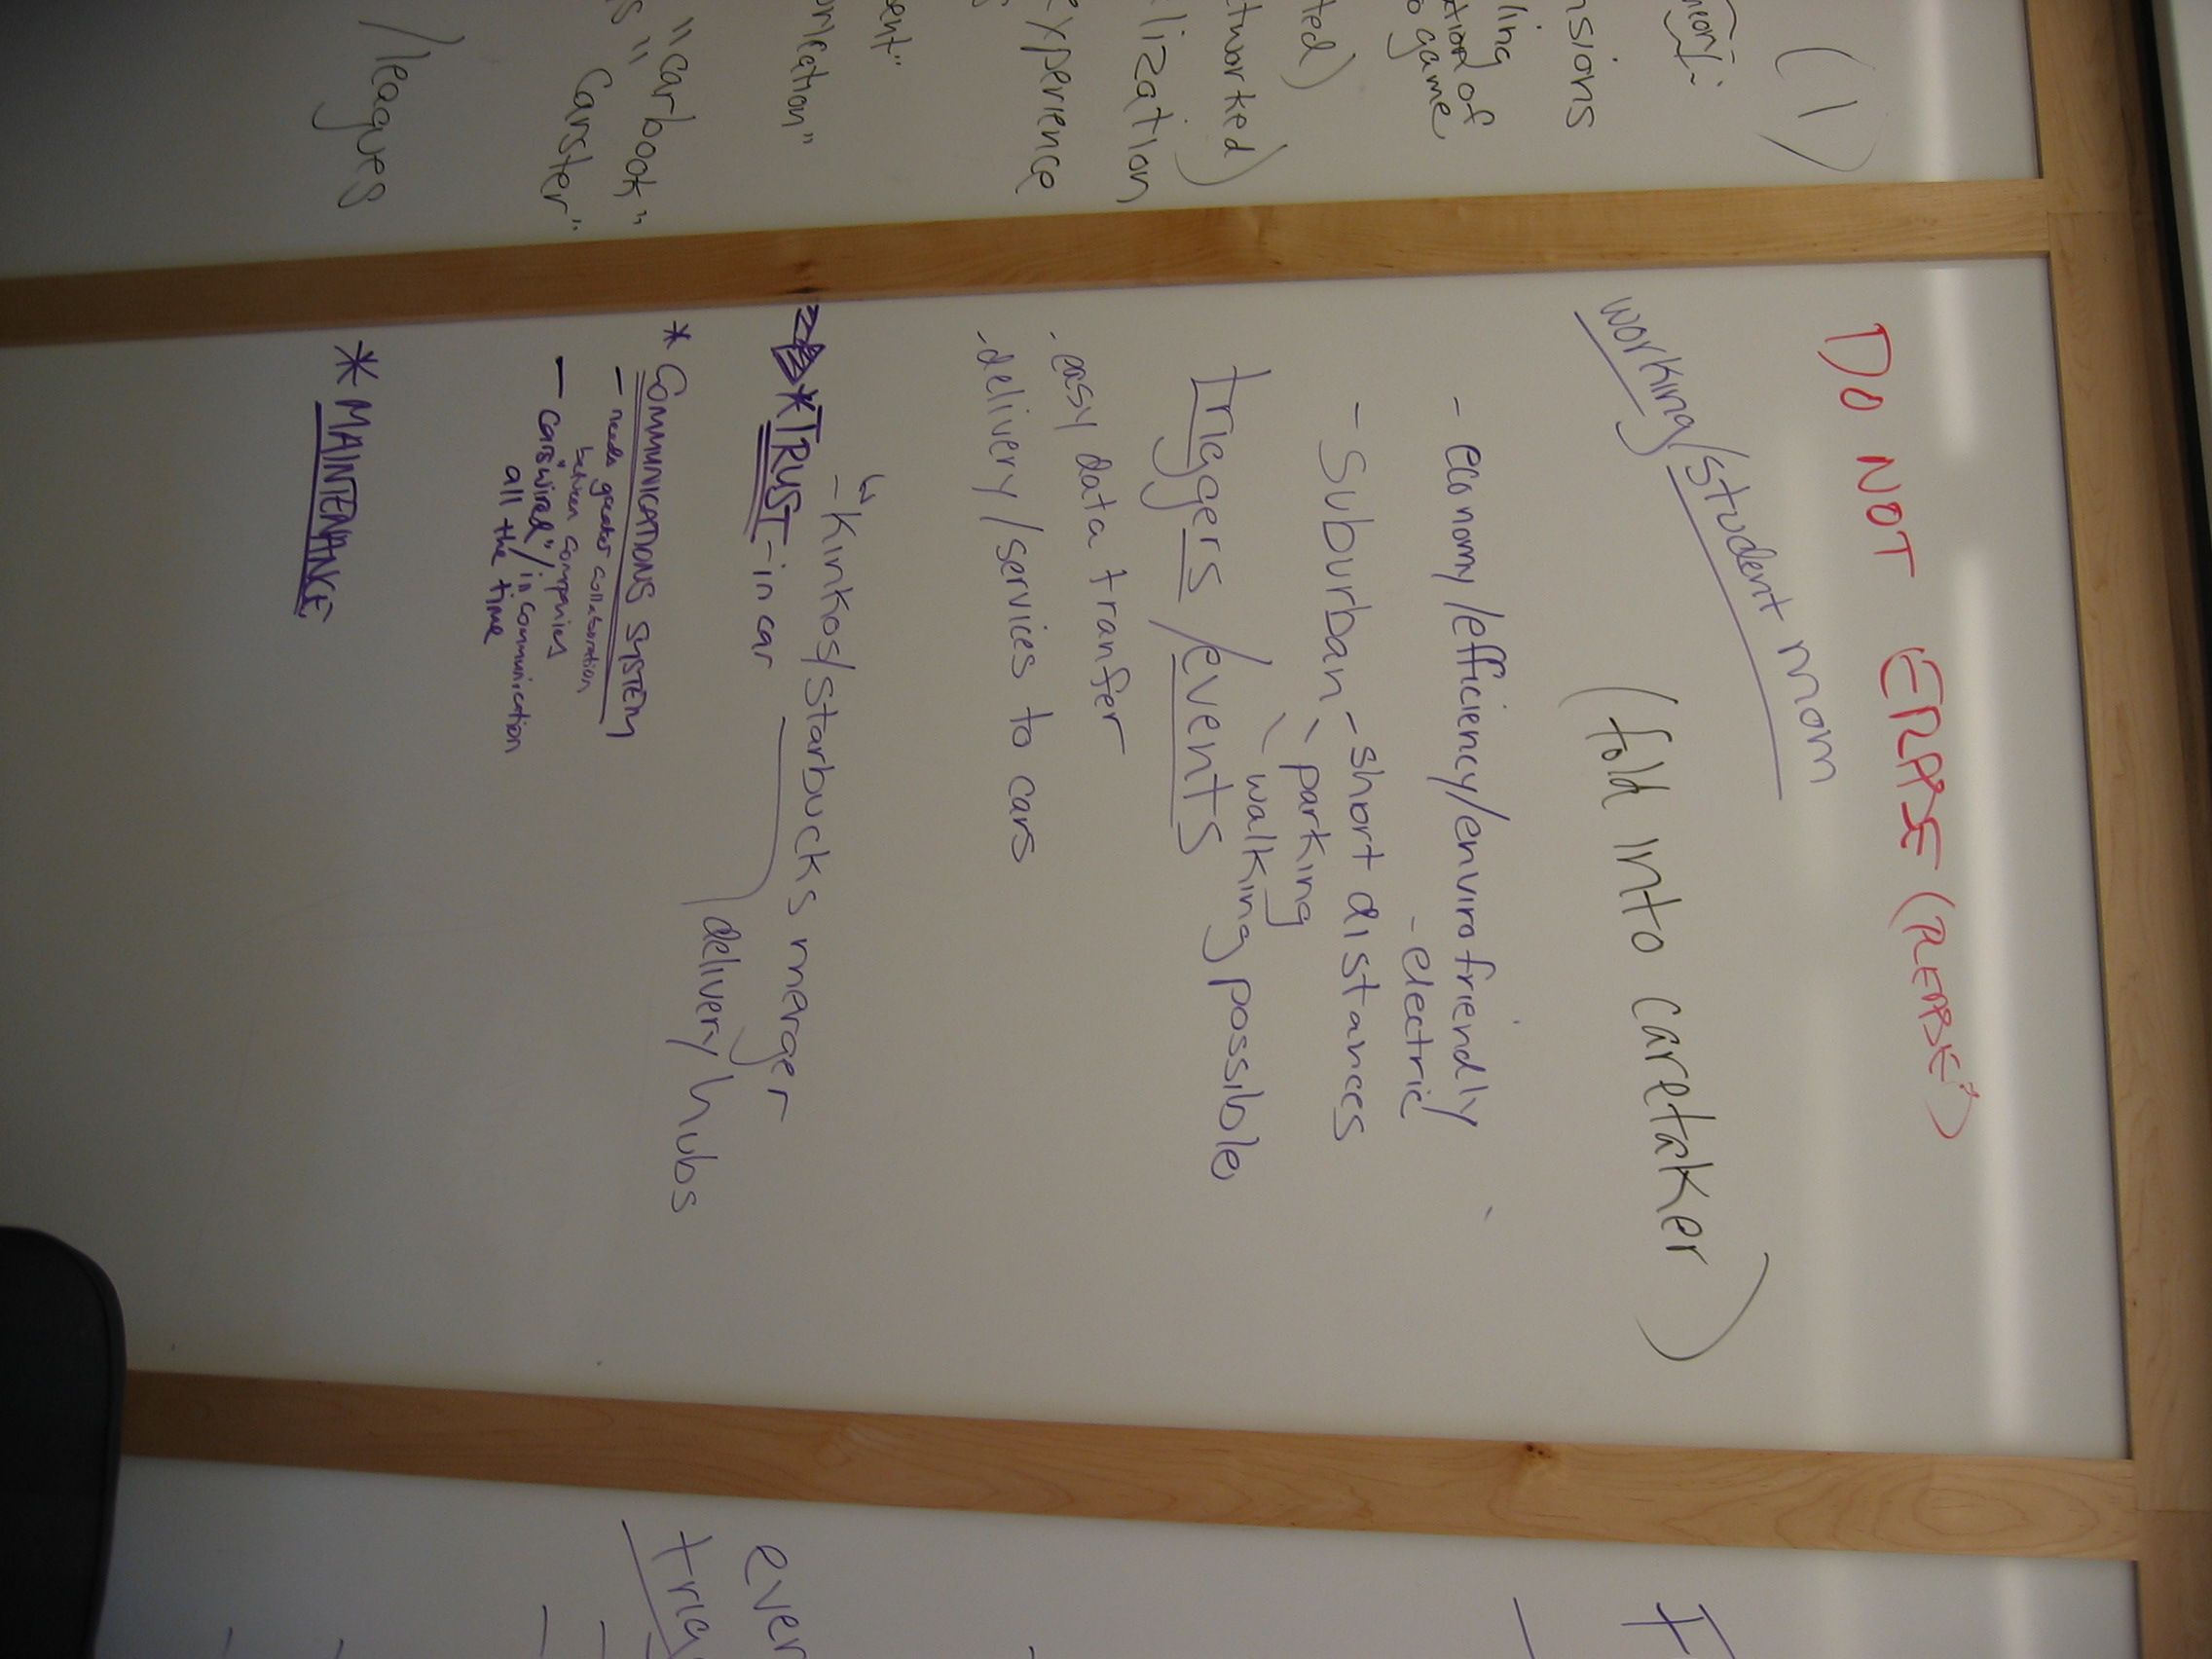 (1)
nsions
ling
ation of
o game
ted)
tworked)
lization
experience
ent"
onication"
"carbook"
s " Carster"
/leagues
DO NOT ERASE (PLEASE)
working/student mom
(fold into caretaker)
- economy/efficiency/enviro friendly
- electric
- suburban - short distances
- parking
- walking possible
triggers/events
- easy data tranfer
- delivery/services to cars
- kinkos/starbucks merger
* TRUST - in car
delivery hubs
* COMMUNICATIONS SYSTEM
- needs greater collaboration
between companies
- cars "wired"/in communication
all the time
* MAINTENANCE
even
trig